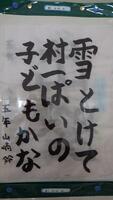 雪とけて
村一ぱいの
子どもかな
五年 山崎